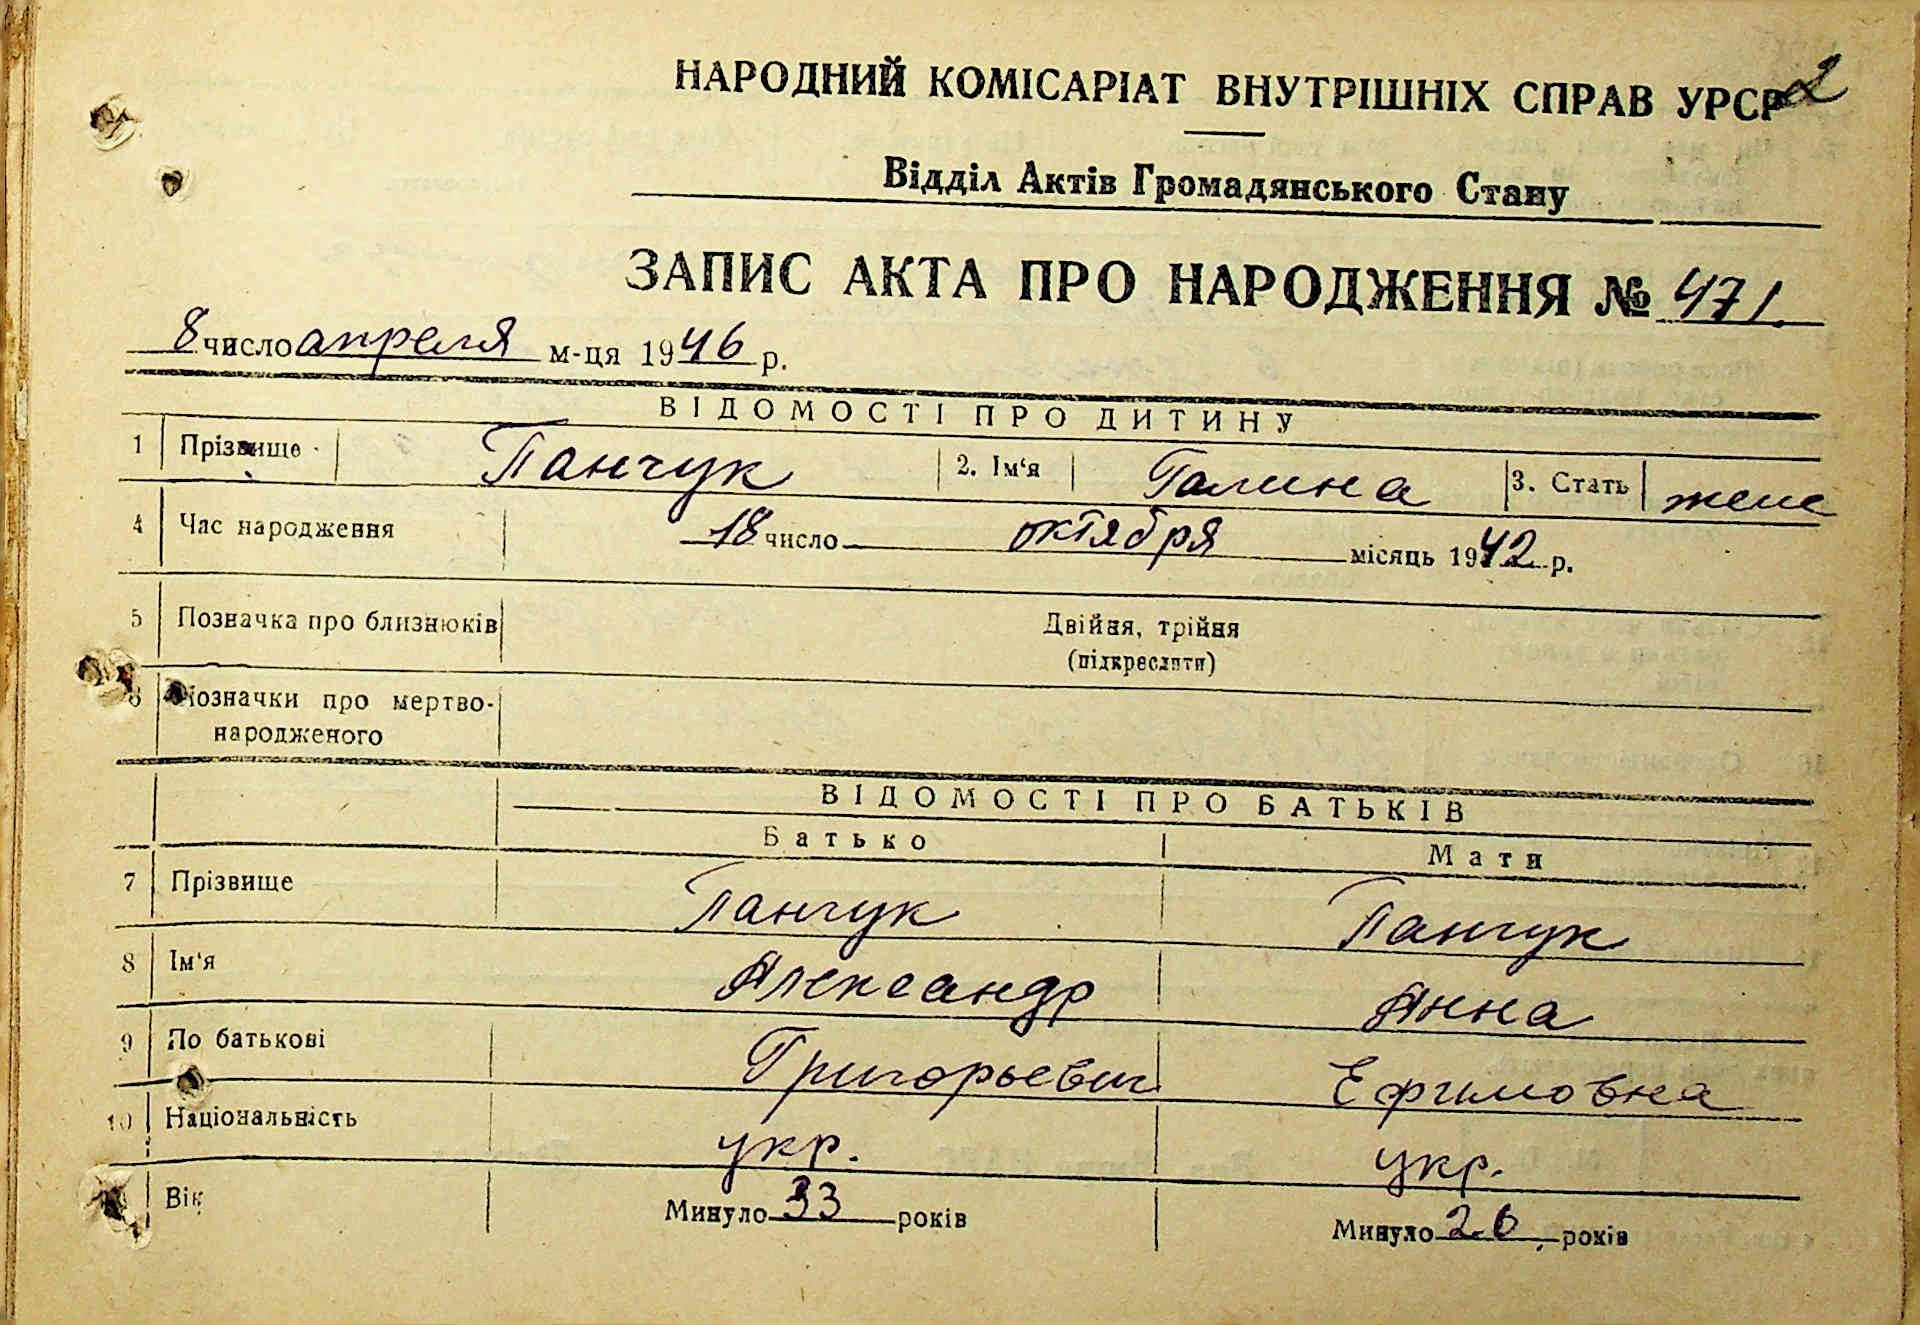 НАРОДНИЙ КОМІСАРІАТ ВНУТРІШНІХ СПРАВ УРСР 2
Відділ Актів Громадянського Стану
ЗАПИС АКТА ПРО НАРОДЖЕННЯ № 471.
8 число апреля м-ця 1946 р.
ВІДОМОСТІ ПРО ДИТИНУ
1 Прізвище Панчук 2. Ім'я Галина 3. Стать жене
4 Час народження 18 число октября місяць 1942 р.
5 Позначка про близнюків Двійня, трійня
(підкреслити)
6 Позначки про мертво-
народженого
ВІДОМОСТІ ПРО БАТЬКІВ
Батько Мати
7 Прізвище Панчук Панчук
8 Ім'я Александр Анна
9 По батькові Григорьевич Ефимовна
10 Національність укр. укр.
Вік Минуло 33 років Минуло 26 років